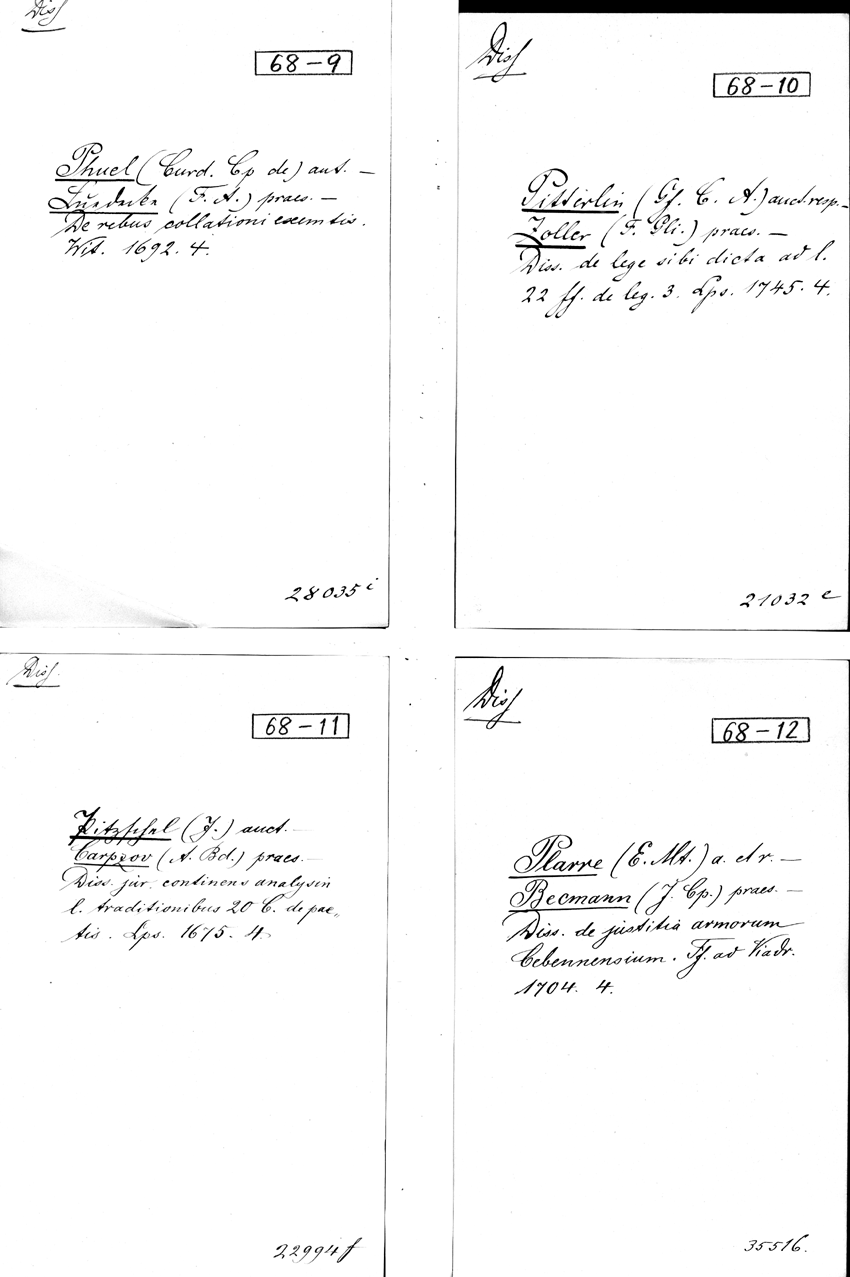 Diss
68-9
Phuel (Curd. Cp de) aut. —
Luedecke (F. A.) praes. —
De rebus collationi exemtis.
Wit. 1692. 4.
28035 i
Diss
68-10
Pitterlin (Gf. C. A.) auct. resp. —
Zoller (F. Gli.) praes. —
Diss. de lege sibi dicta ad l.
22 ff. de leg. 3. Lps. 1745. 4.
21032 e
Diss.
68-11
Pitzschel (J.) auct. —
Carpzov (A. Bd.) praes. —
Diss. jur. continens analysin
l. traditionibus 20 C. de pac„
tis. Lps. 1675. 4.
22994 f
Diss
68-12
Plarre (E. Mt.) a. et r. —
Becmann (J. Cp.) praes. —
Diss. de justitia armorum
Cebennensium. Ff. ad Viadr.
1704. 4.
35516.